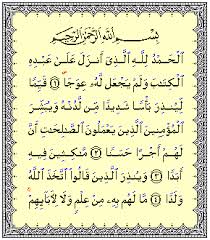 بِسْمِ ٱللَّهِ ٱلرَّحْمَٰنِ ٱلرَّحِيمِ
ٱلْحَمْدُ لِلَّهِ ٱلَّذِىٓ أَنزَلَ عَلَىٰ عَبْدِهِ
ٱلْكِتَٰبَ وَلَمْ يَجْعَل لَّهُۥ عِوَجَا ۜ ١ قَيِّمًا
لِّيُنذِرَ بَأْسًا شَدِيدًا مِّن لَّدُنْهُ وَيُبَشِّرَ
ٱلْمُؤْمِنِينَ ٱلَّذِينَ يَعْمَلُونَ ٱلصَّٰلِحَٰتِ أَنَّ
لَهُمْ أَجْرًا حَسَنًا ٢ مَّٰكِثِينَ فِيهِ
أَبَدًا ٣ وَيُنذِرَ ٱلَّذِينَ قَالُوا۟ ٱتَّخَذَ ٱللَّهُ
وَلَدًا ٤ مَّا لَهُم بِهِۦ مِنْ عِلْمٍ وَلَا لِءَابَآئِهِمْ